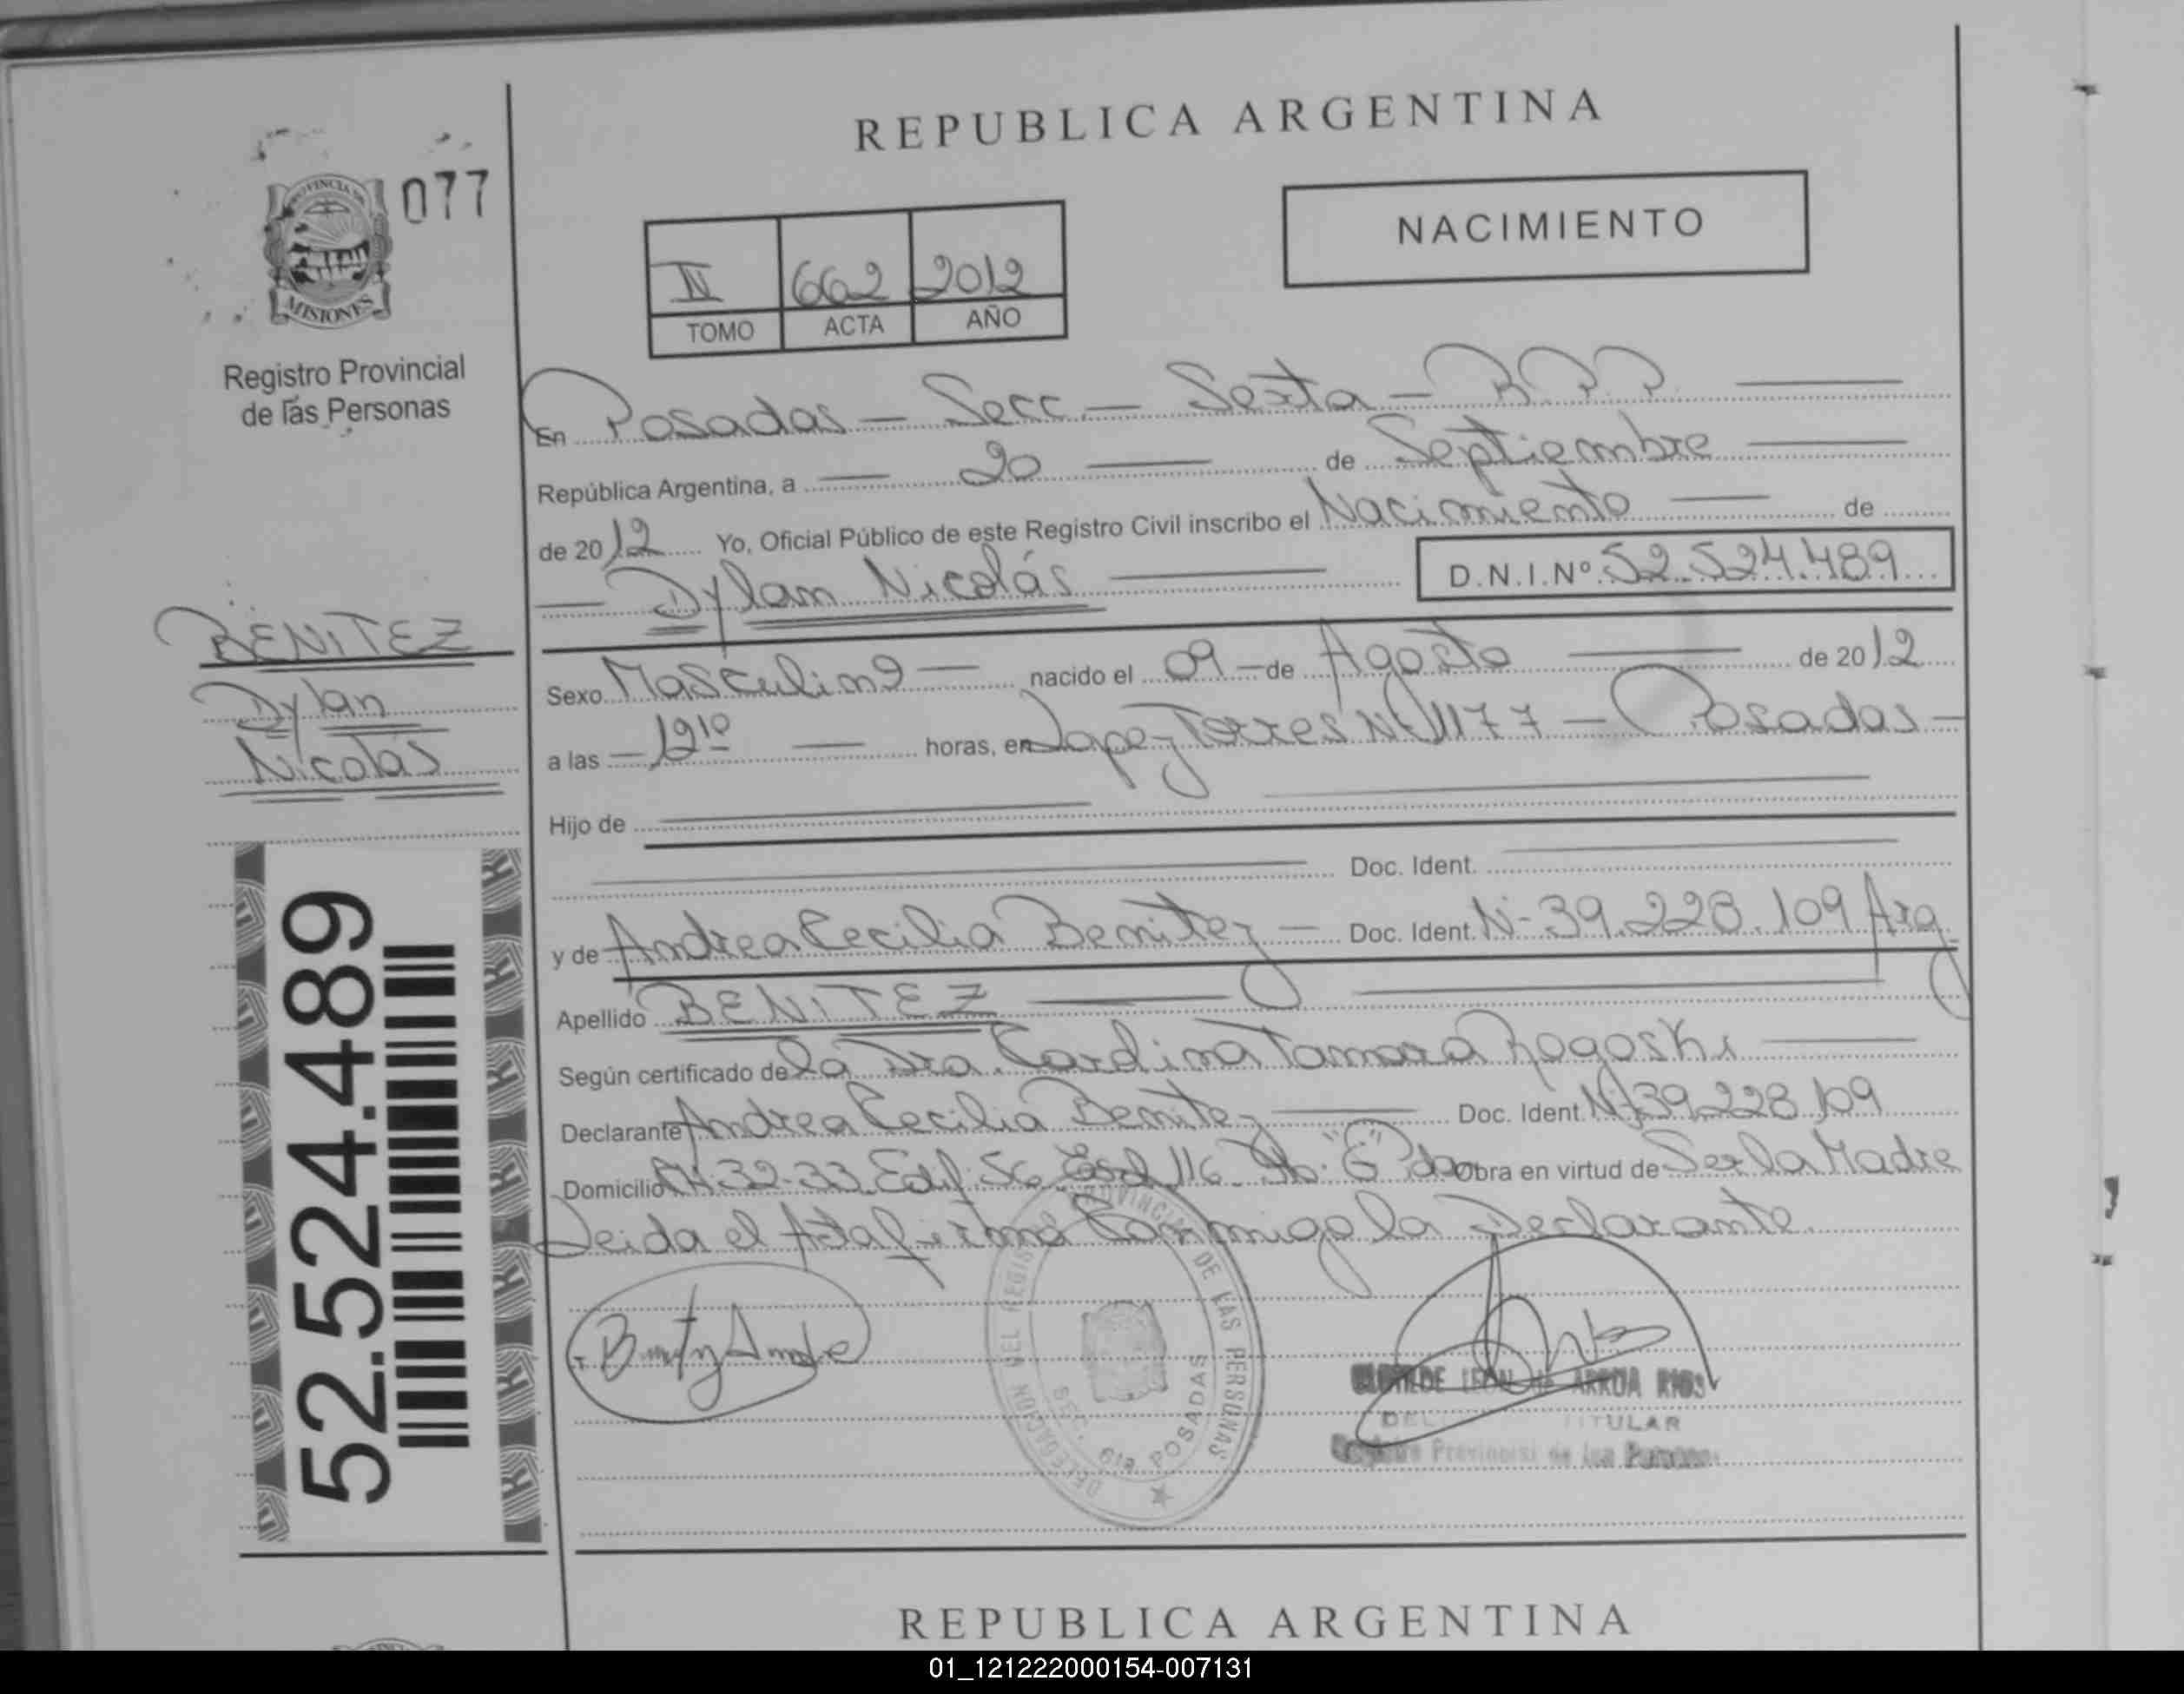 REPUBLICA ARGENTINA
077
PROVINCIA DE
MISIONES
Registro Provincial
de las Personas
NACIMIENTO
II 662 2012
TOMO ACTA AÑO
En Posadas - Secc - Sexta - R.P.P.
República Argentina, a - 20 - de Septiembre
de 2012 Yo, Oficial Público de este Registro Civil inscribo el Nacimiento de
Dylan Nicolás D.N.I.Nº 52.524.489
BENITEZ
Dylan
Nicolás
52.524.489
Sexo Masculino nacido el 09 - de Agosto de 2012
a las - 12 10 horas, en Lopez Torres Nº 1177 - Posadas -
Hijo de
Doc. Ident.
y de Andrea Cecilia Benitez - Doc. Ident. Nº 39.228.109 Arg
Apellido BENITEZ
Según certificado de la Dra. Carolina Tamara Rogoski
Declarante Andrea Cecilia Benitez Doc. Ident. Nº 39.228.109
Domicilio CH. 32-33 Edif. 56 Esc. 116 Pb. "G" Pdas Obra en virtud de Ser la Madre
Leida el Acta firma Conmigo la Declarante.
Benitez Andrea
DELEGACION DEL REGISTRO PROVINCIAL DE LAS PERSONAS
SEC. 6ta. POSADAS
LEON de ARRUA RIOS
TITULAR
Provincial de las Personas
REPUBLICA ARGENTINA
01_121222000154-007131